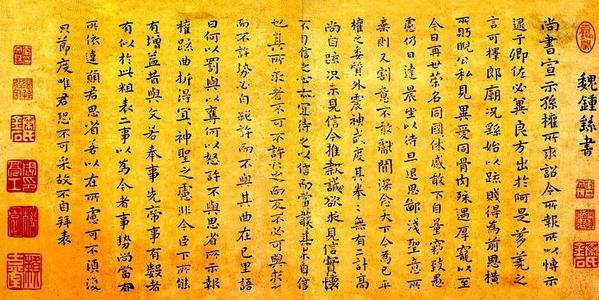 魏鍾繇書
尚書宣示孫權所求詔令所報所以博示
逮于卿佐必冀良方出於阿是芻蕘之
言可擇郎廟況繇始以疏賤得為前恩橫
所盻睨公私見異愛同骨肉殊遇厚寵以至
今日再世榮名同國休慼敢不自量竊致愚
慮仍日達晨坐以待旦退思鄙淺聖意所
棄則又割意不敢獻聞深念天下今為已平
權之委質外震神武度其拳拳無有二計高
尚自疏況未見信今推款誠欲求見信實懷
不自信之心亦宜待之以信而當護其未自信
也其所求者不可不許許之而反不必可與求之
而不許勢必自絕許而不與其曲在己里語
曰何以罰與以奪何以怒許不與思省所示報
權疏曲折得宜神聖之慮非今臣下所能
有增益昔與文若奉事先帝事有數者
有似於此粗表二事以為今者事勢尚當有
所依違願君思省若以在所慮可不須復
節度唯君恐不可采故不自拜表